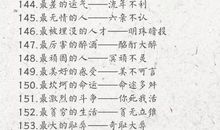 144.最差的运气——流年不利
145.最无情的人——六亲不认
146.最被埋没的人才——明珠暗投
147.最厉害的醉酒——酩酊大醉
148.最顽固的人——冥顽不灵
149.最美好的感受——美不可言
150.最坎坷的命运——命途多舛
151.最激烈的斗争——你死我活
152.最危险的生日——首无血难
153.最大的耻辱——奇耻大辱